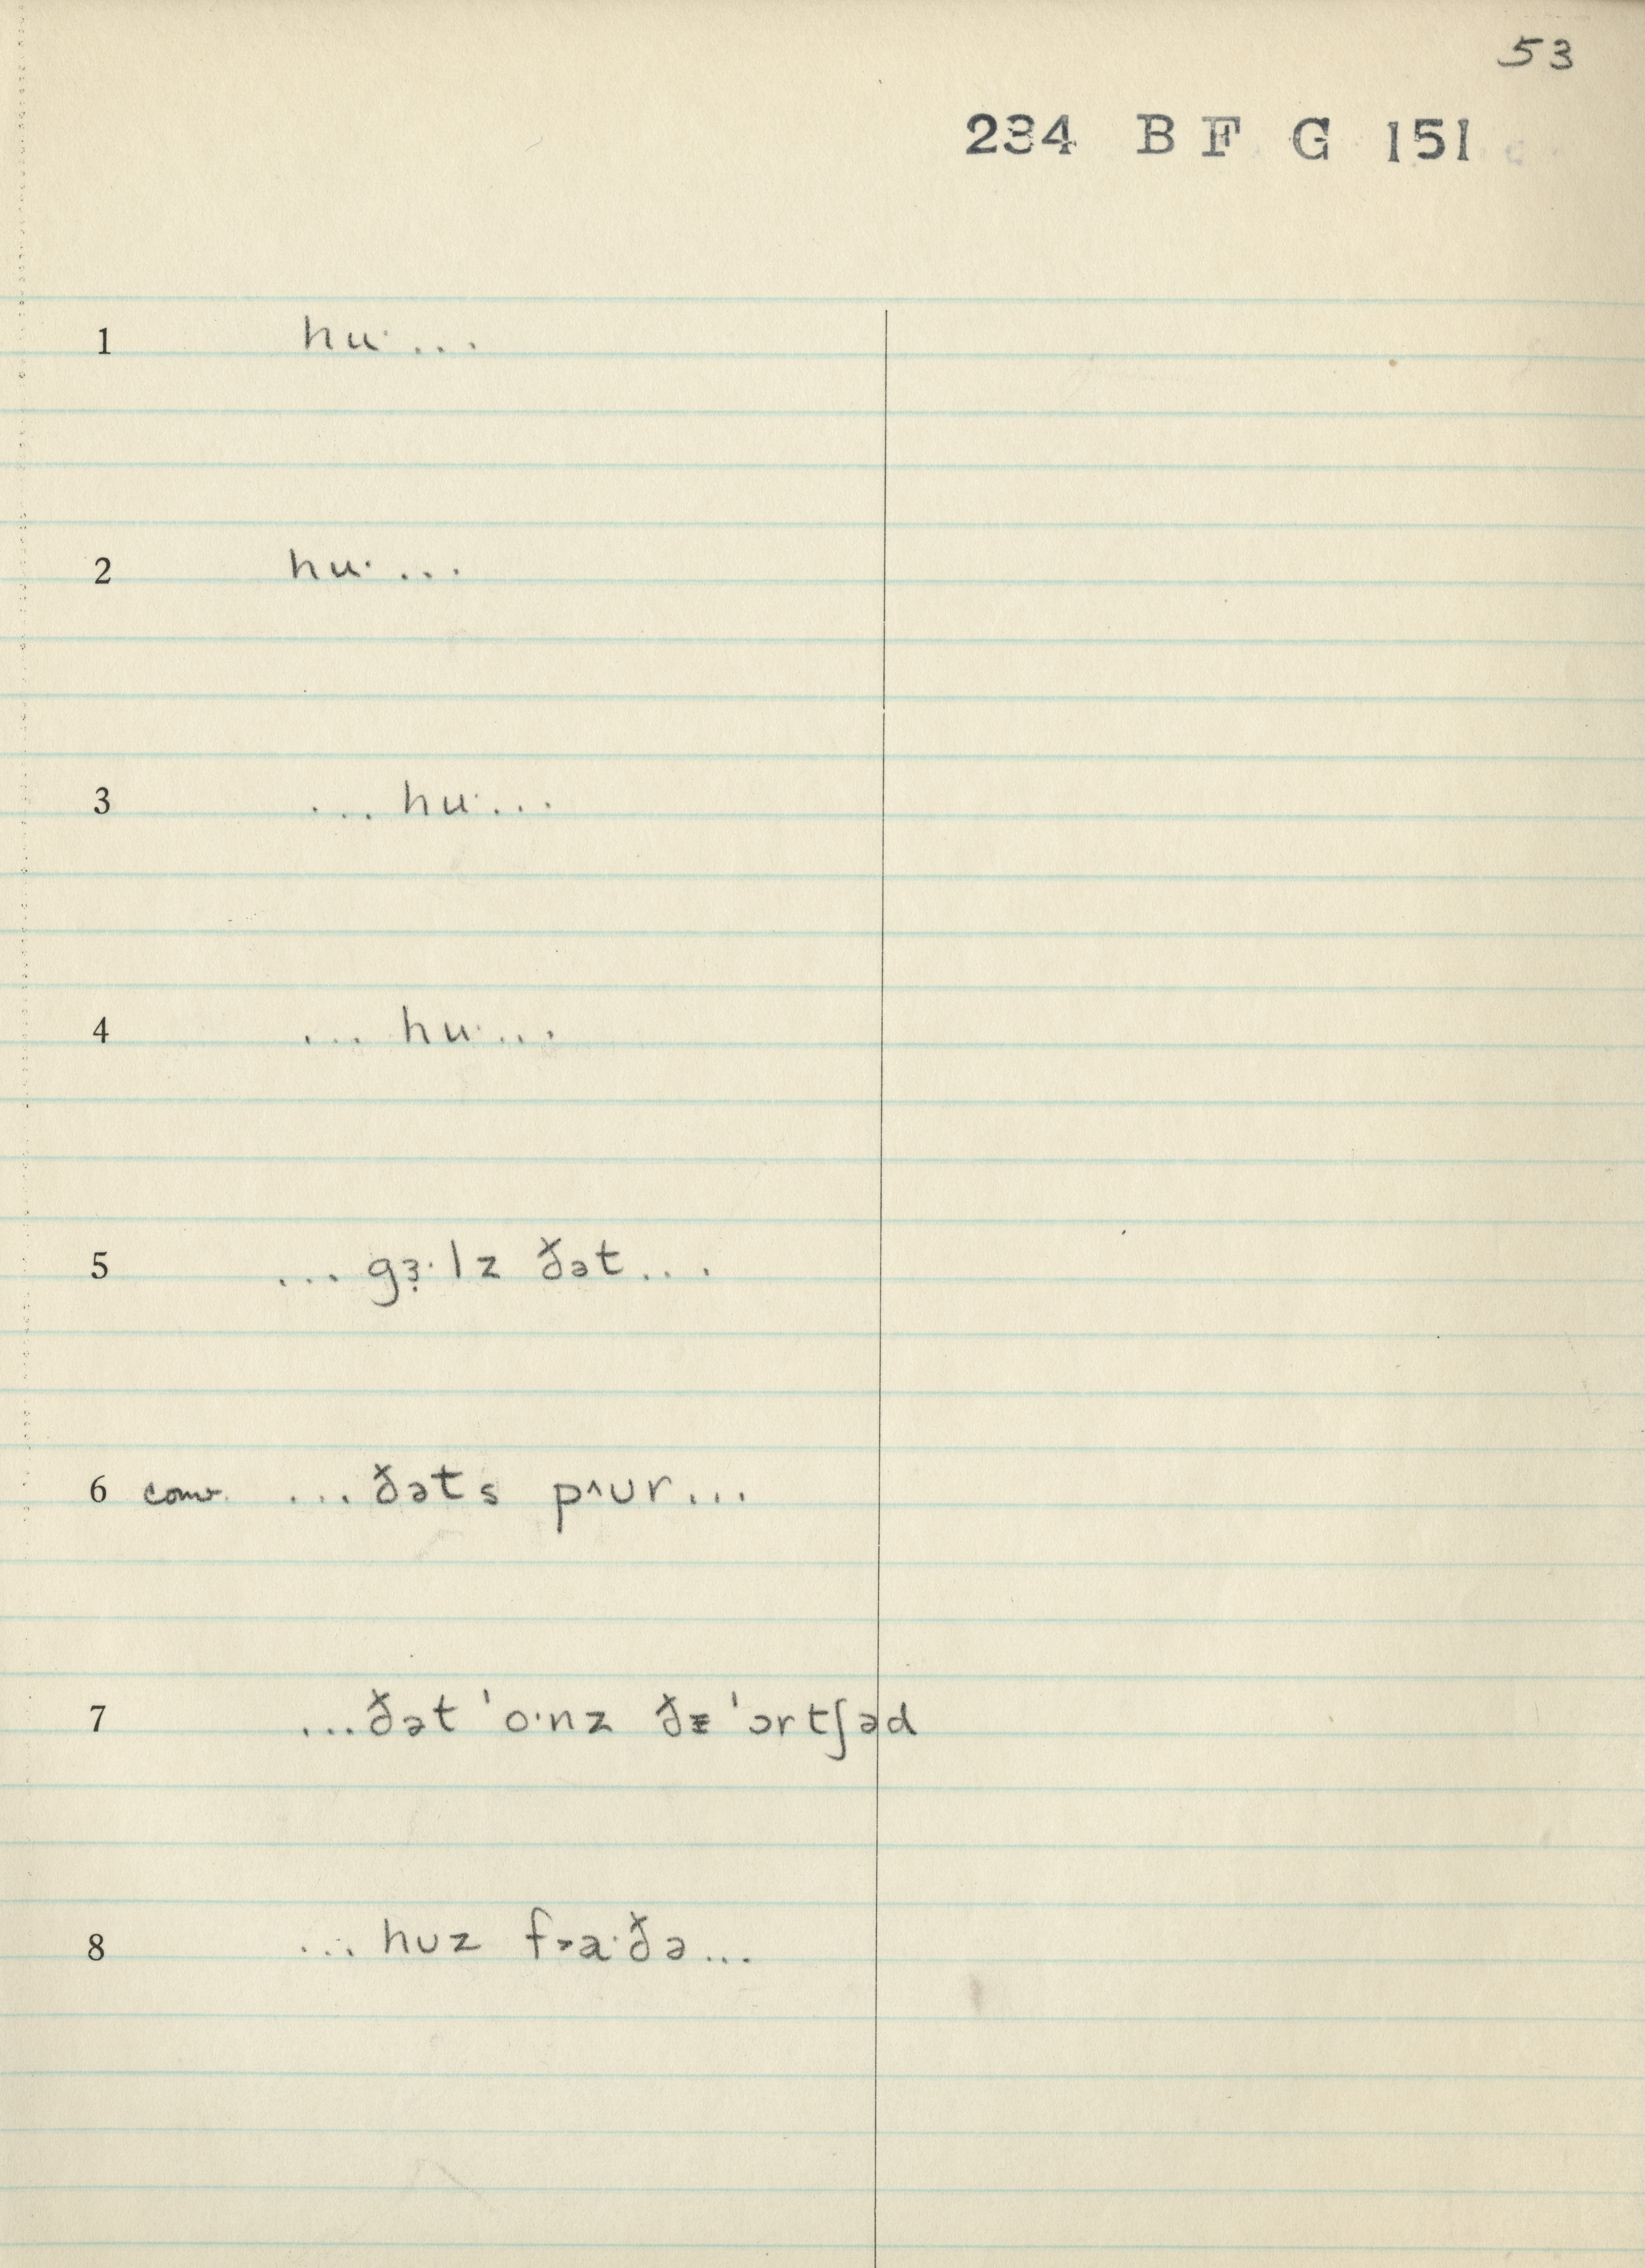 53
234 B F G 151
1 hu· ...
2 hu· ...
3 ... hu· ...
4 ... hu· ...
5 ... gɜ̣·lz ðət ...
6 conv. ... ðəts p^ʊr ...
7 ... ðət ˈo·nz ðɪ ˈɔrtʃəd
8 ... hʊz f>a·ðə ...